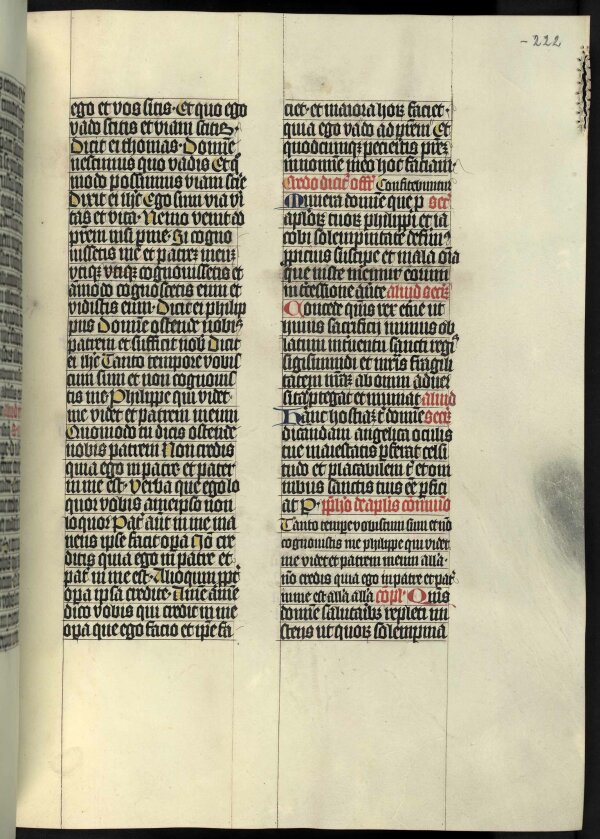 -222
ego et vos sitis· Et quo ego
vado scitis et viam scitis·
Dicit ei thomas· Domīe
nescimus quo vadis Et qͦ
modo possumus viam scīe
Dixit ei ihc̄ Ego sum via vī
tas et vita· Nemo venit ad
prem nisi per me· Si cogno
vissetis me et patrē meuʒ
vtiqʒ vtiqʒ cognovissetis et
amodo cognoscetis eum et
vidistis eum· Dicit ei philip
pus Domīe ostende nobis
patrem et sufficit nob Dicit
ei ihc̄ Tanto tempore vobis
cum sum et non cognovis
tis me Philippe qui videt
me videt et patrem meum
Quomodo tu dicis ostende
nobis patrem Non credis
quia ego in patre et pater
in me est· Verba que ego lo
quor vobis a meipso non
loquor Pat̄ aut̄ in me ma
nens ipse facit opa Nō cre
ditis quia ego in patre et
pat̄ in me est· Alioquin ppt̄
opa ipsa credite· Amē amē
dico vobis qui credit in me
opa que ego facio et ipse fa
ciet· et maiora hoꝝ faciet·
quia ego vado ad prem Et
quodcūqʒ petieritis prēʒ
in nomine meo hoc faciam·
Credo dicit̄ off̄ Confitebuntur
Munera domīe que p secʳ
aploꝝ tuoꝝ philippi et ia
cobi solempnitate deferī
ppicius suscipe et mala oīa
que iuste meremur eorum
intercessione aūte aliud secʳ
Concede quis rex et̄ne ut
huius sacrificii munus ob
latum intuentu sancti regis
sigismundi et nr̄is fragili
tatem nr̄aʒ ab omni adver
sitate ptegat et muniat aliud
Hanc hostiaʒ t̄ domīe secʳ
dicandam angelica oculis
tue maiestatis pferat celsi
tudo et placabilem t̄ et om
nibus sanctis tuis et pfici
at P· philippo de aplis commūio
Tanto tempe vobiscum sum et nō
cognovistis me philippe qui videt
me videt et patrem meum alla·
nō credis quia ego in patre et pat̄
in me est alla alla Cōpl· Quis
domīe salutaribʒ repleti mi
steriis ut quoꝝ solempnia